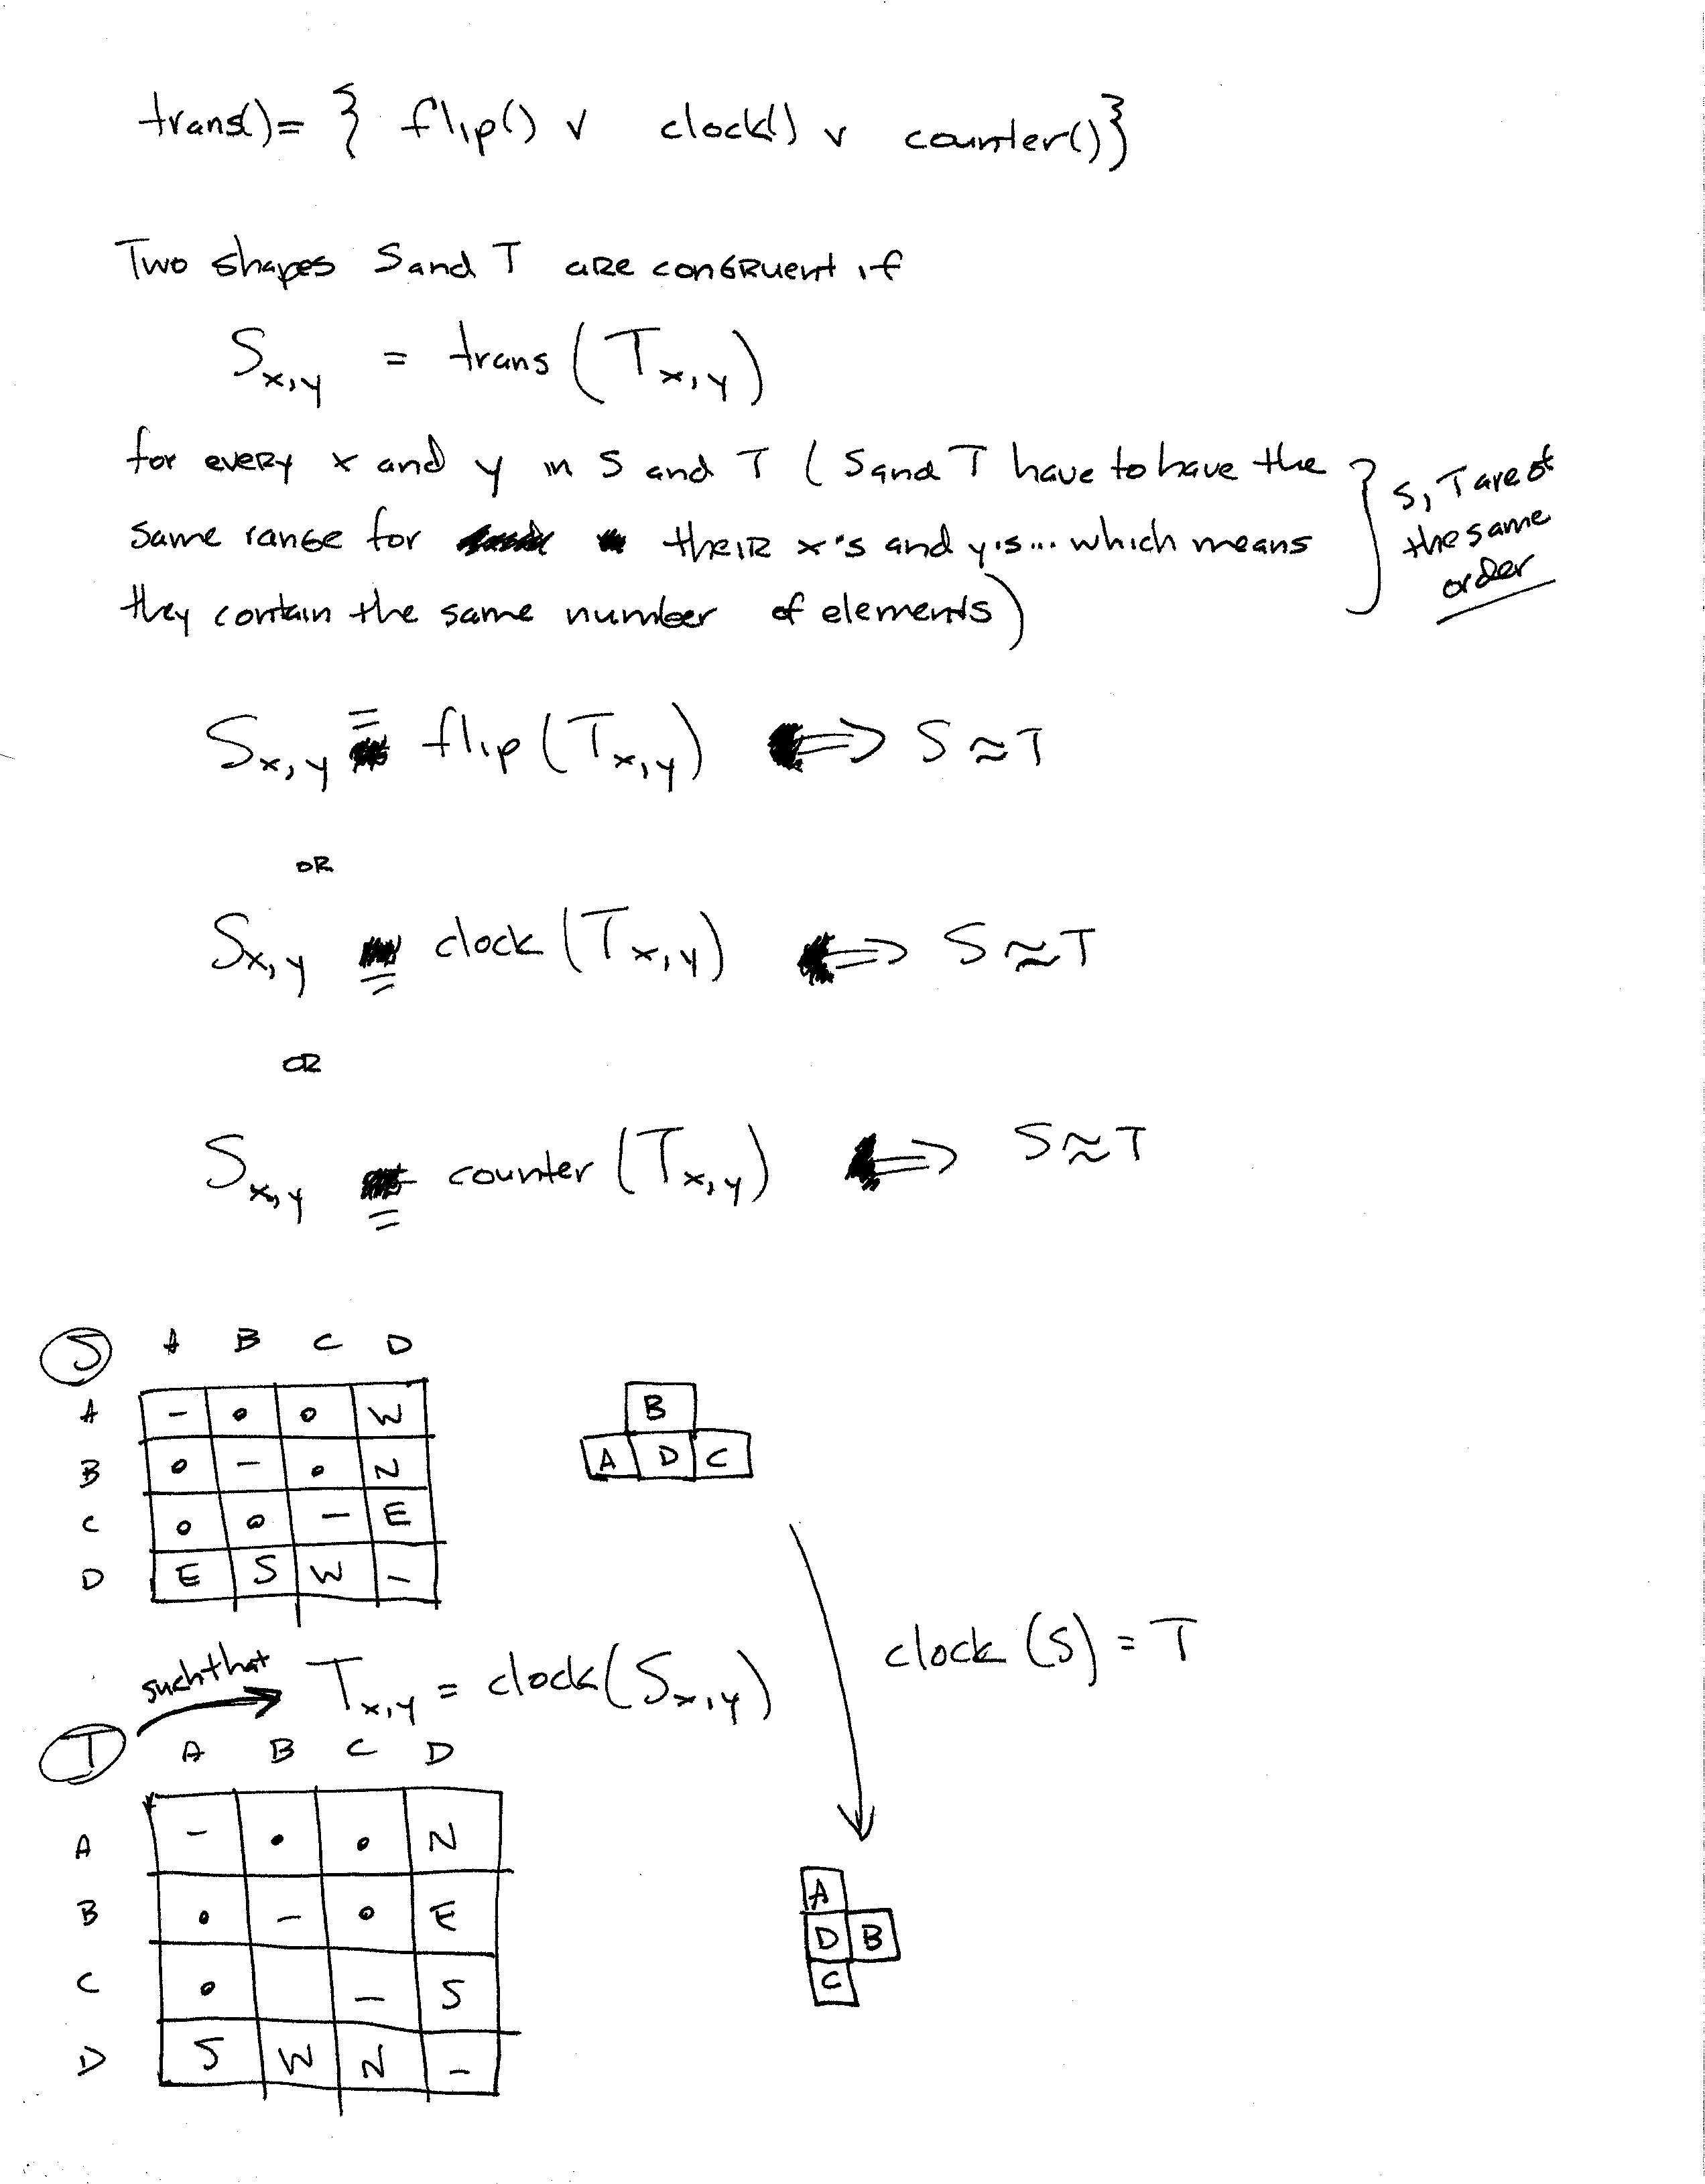 trans()= { flip() ∨ clock() ∨ counter()}
Two shapes S and T are congruent if
S x,y = trans (T x,y)
for every x and y in S and T (S and T have to have the
same range for their x's and y's... which means
they contain the same number of elements)
} S, T are of
the same
order
S x,y = flip (T x,y) ⇒ S ≈ T
OR
S x,y = clock (T x,y) ⇒ S ≈ T
OR
S x,y = counter (T x,y) ⇒ S ≈ T
S A B C D
A - 0 0 W
B 0 - 0 N
C 0 0 - E
D E S W -
B
A D C
clock (S) = T
such that T x,y = clock (S x,y)
T A B C D
A - 0 0 N
B 0 - 0 E
C 0 - S
D S W N -
A
D B
C